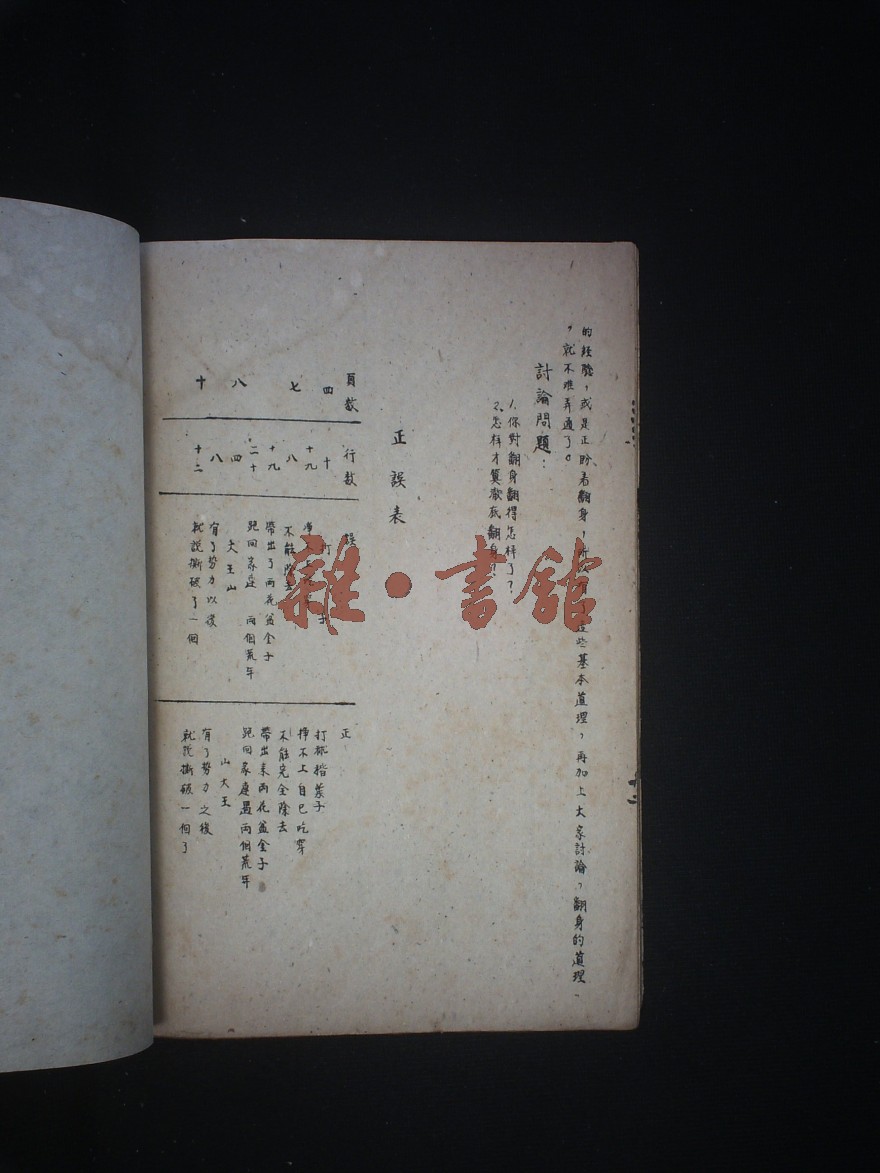 的經驗，或是正盼着翻身，所以有了這些基本道理，再加上大家討論，翻身的道理
，就不难弄通了。
討論問題：
1.你對翻身翻得怎样了？
2.怎样才算澈底翻身？
正誤表
頁数 行数 正
四 十 打 子 打梳揹袋子
十九 掙不上自已吃穿
七 八 不能除去 不能完全除去
十九 帶出了兩花盆金子 帶出来兩花盆金子
二十 跑回家庭 兩個荒年 跑回家庭過兩個荒年
八 四 大王山 山大王
八 有了势力以後 有了势力之後
十 十二 就説撕破了一個 就説撕破一個了
雜·書館